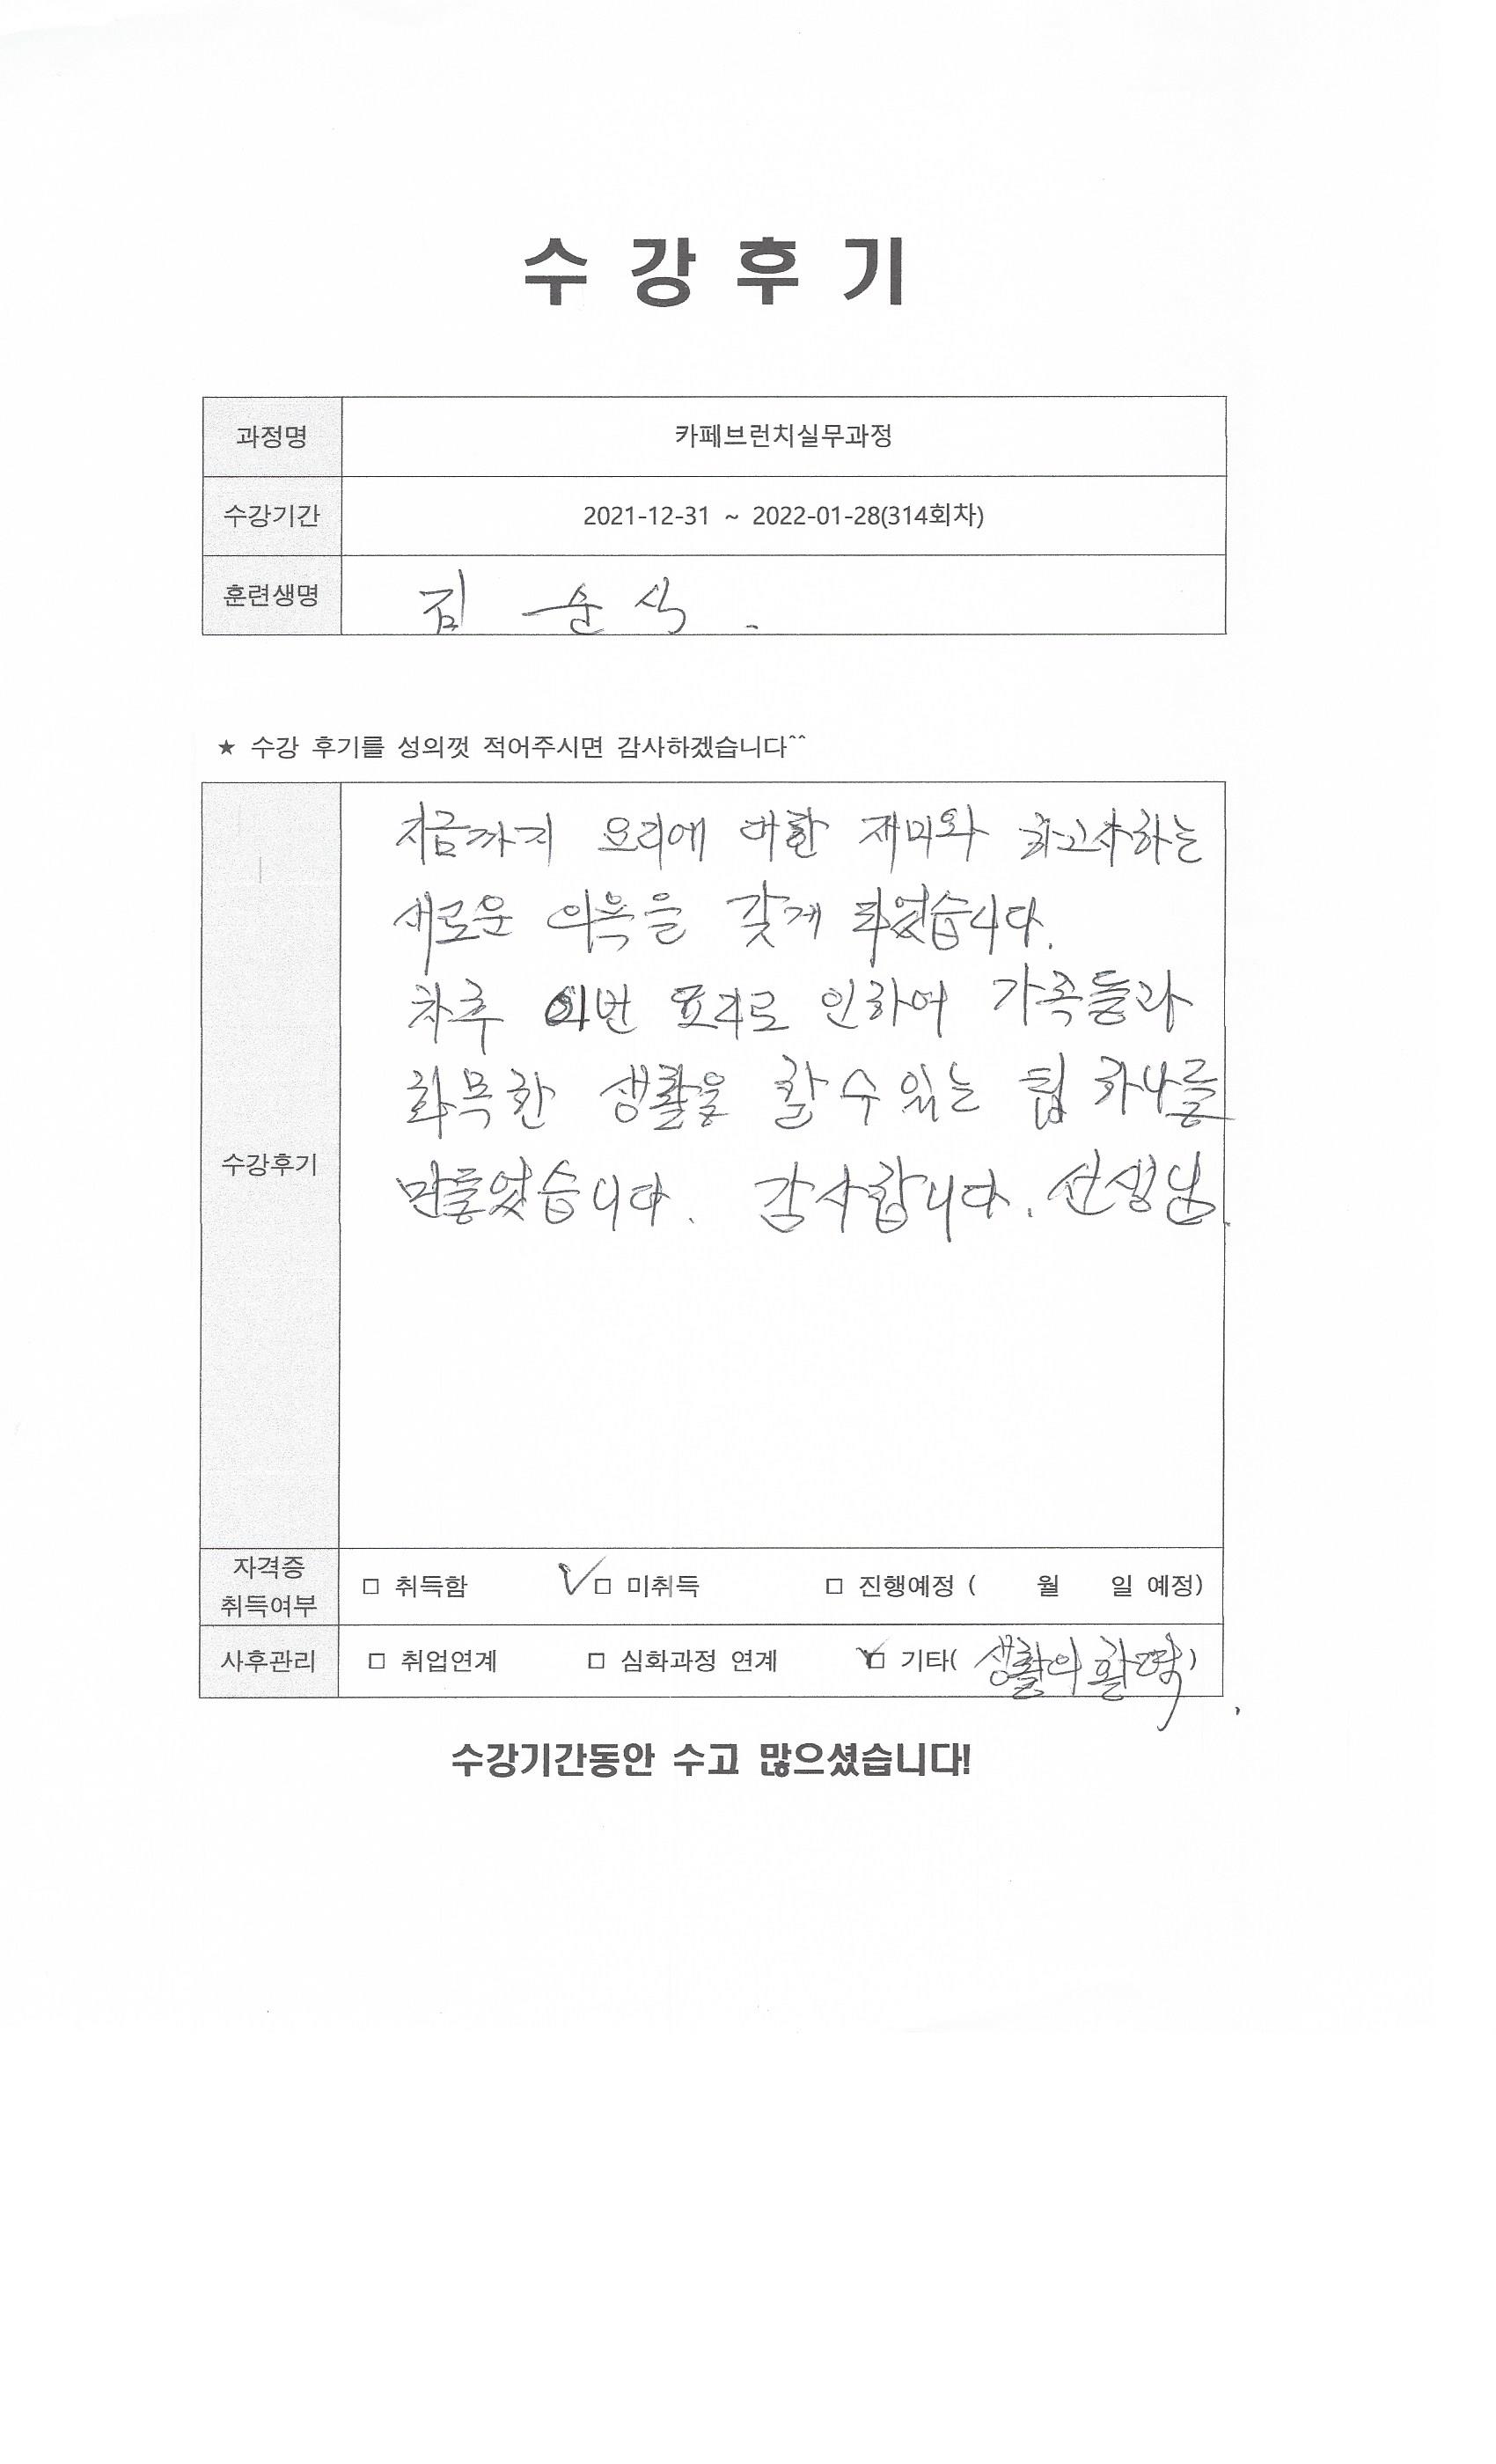 수 강 후 기
과정명 카페브런치실무과정
수강기간 2021-12-31 ~ 2022-01-28(314회차)
훈련생명 김 순 식 .
★ 수강 후기를 성의껏 적어주시면 감사하겠습니다^^
수강후기
지금까지 요리에 대한 재미와 하고자하는
새로운 의욕을 갖게 되었습니다.
차후 이번 요리로 인하여 가족들과
화목한 생활을 할 수 있는 팁 하나를
만들었습니다. 감사합니다. 선생님.
자격증
취득여부 □ 취득함 ✓□ 미취득 □ 진행예정 ( 월 일 예정)
사후관리 □ 취업연계 □ 심화과정 연계 ✓□ 기타( 생활의 활력 )
수강기간동안 수고 많으셨습니다!